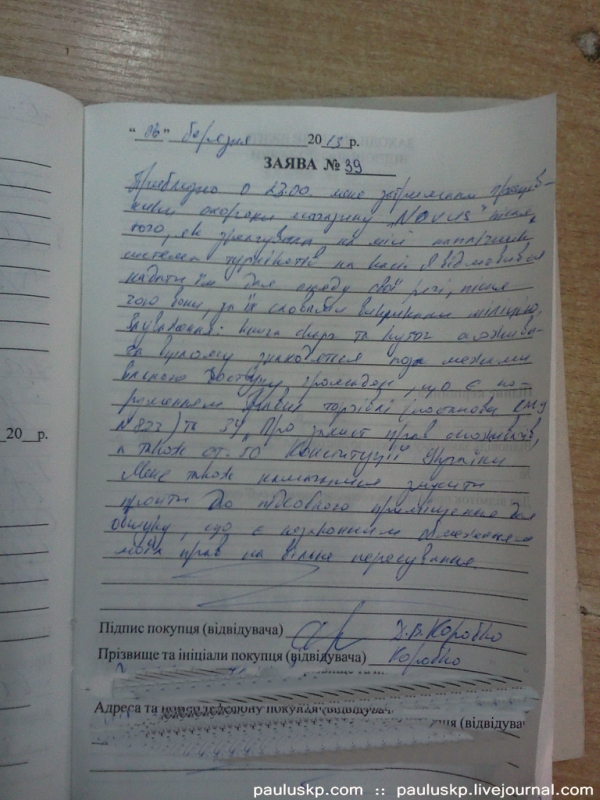 " 06 " березня 2013 р.
ЗАЯВА № 39
Приблизно о 23.00. мене затримали праців-
ники охорони магазину „Novus" після
того, як на мені
система турнікетів на касі. Я відмовився
надати їм для огляду свої речі, після
чого вони, за їх словами викликали міліцію.
книга скарг та куточок споживача
знаходяться поза межами
вільного доступу громадян, що є по-
рушенням правил торгівлі (постанова КМУ
№ 833) та ЗУ „Про захист прав споживачів",
а також ст. 50 Конституції України
Мене також намагалися
пройти до підсобного приміщення для
обшуку, що є незаконним обмеженням
моїх прав на вільне пересування.
Підпис покупця (відвідувача) Коробко
Прізвище та ініціали покупця (відвідувача) Коробко
Адреса та номер телефону покупця (відвідувача
ця (відвідувач
_20__р.
pauluskp.com :: pauluskp.livejournal.com